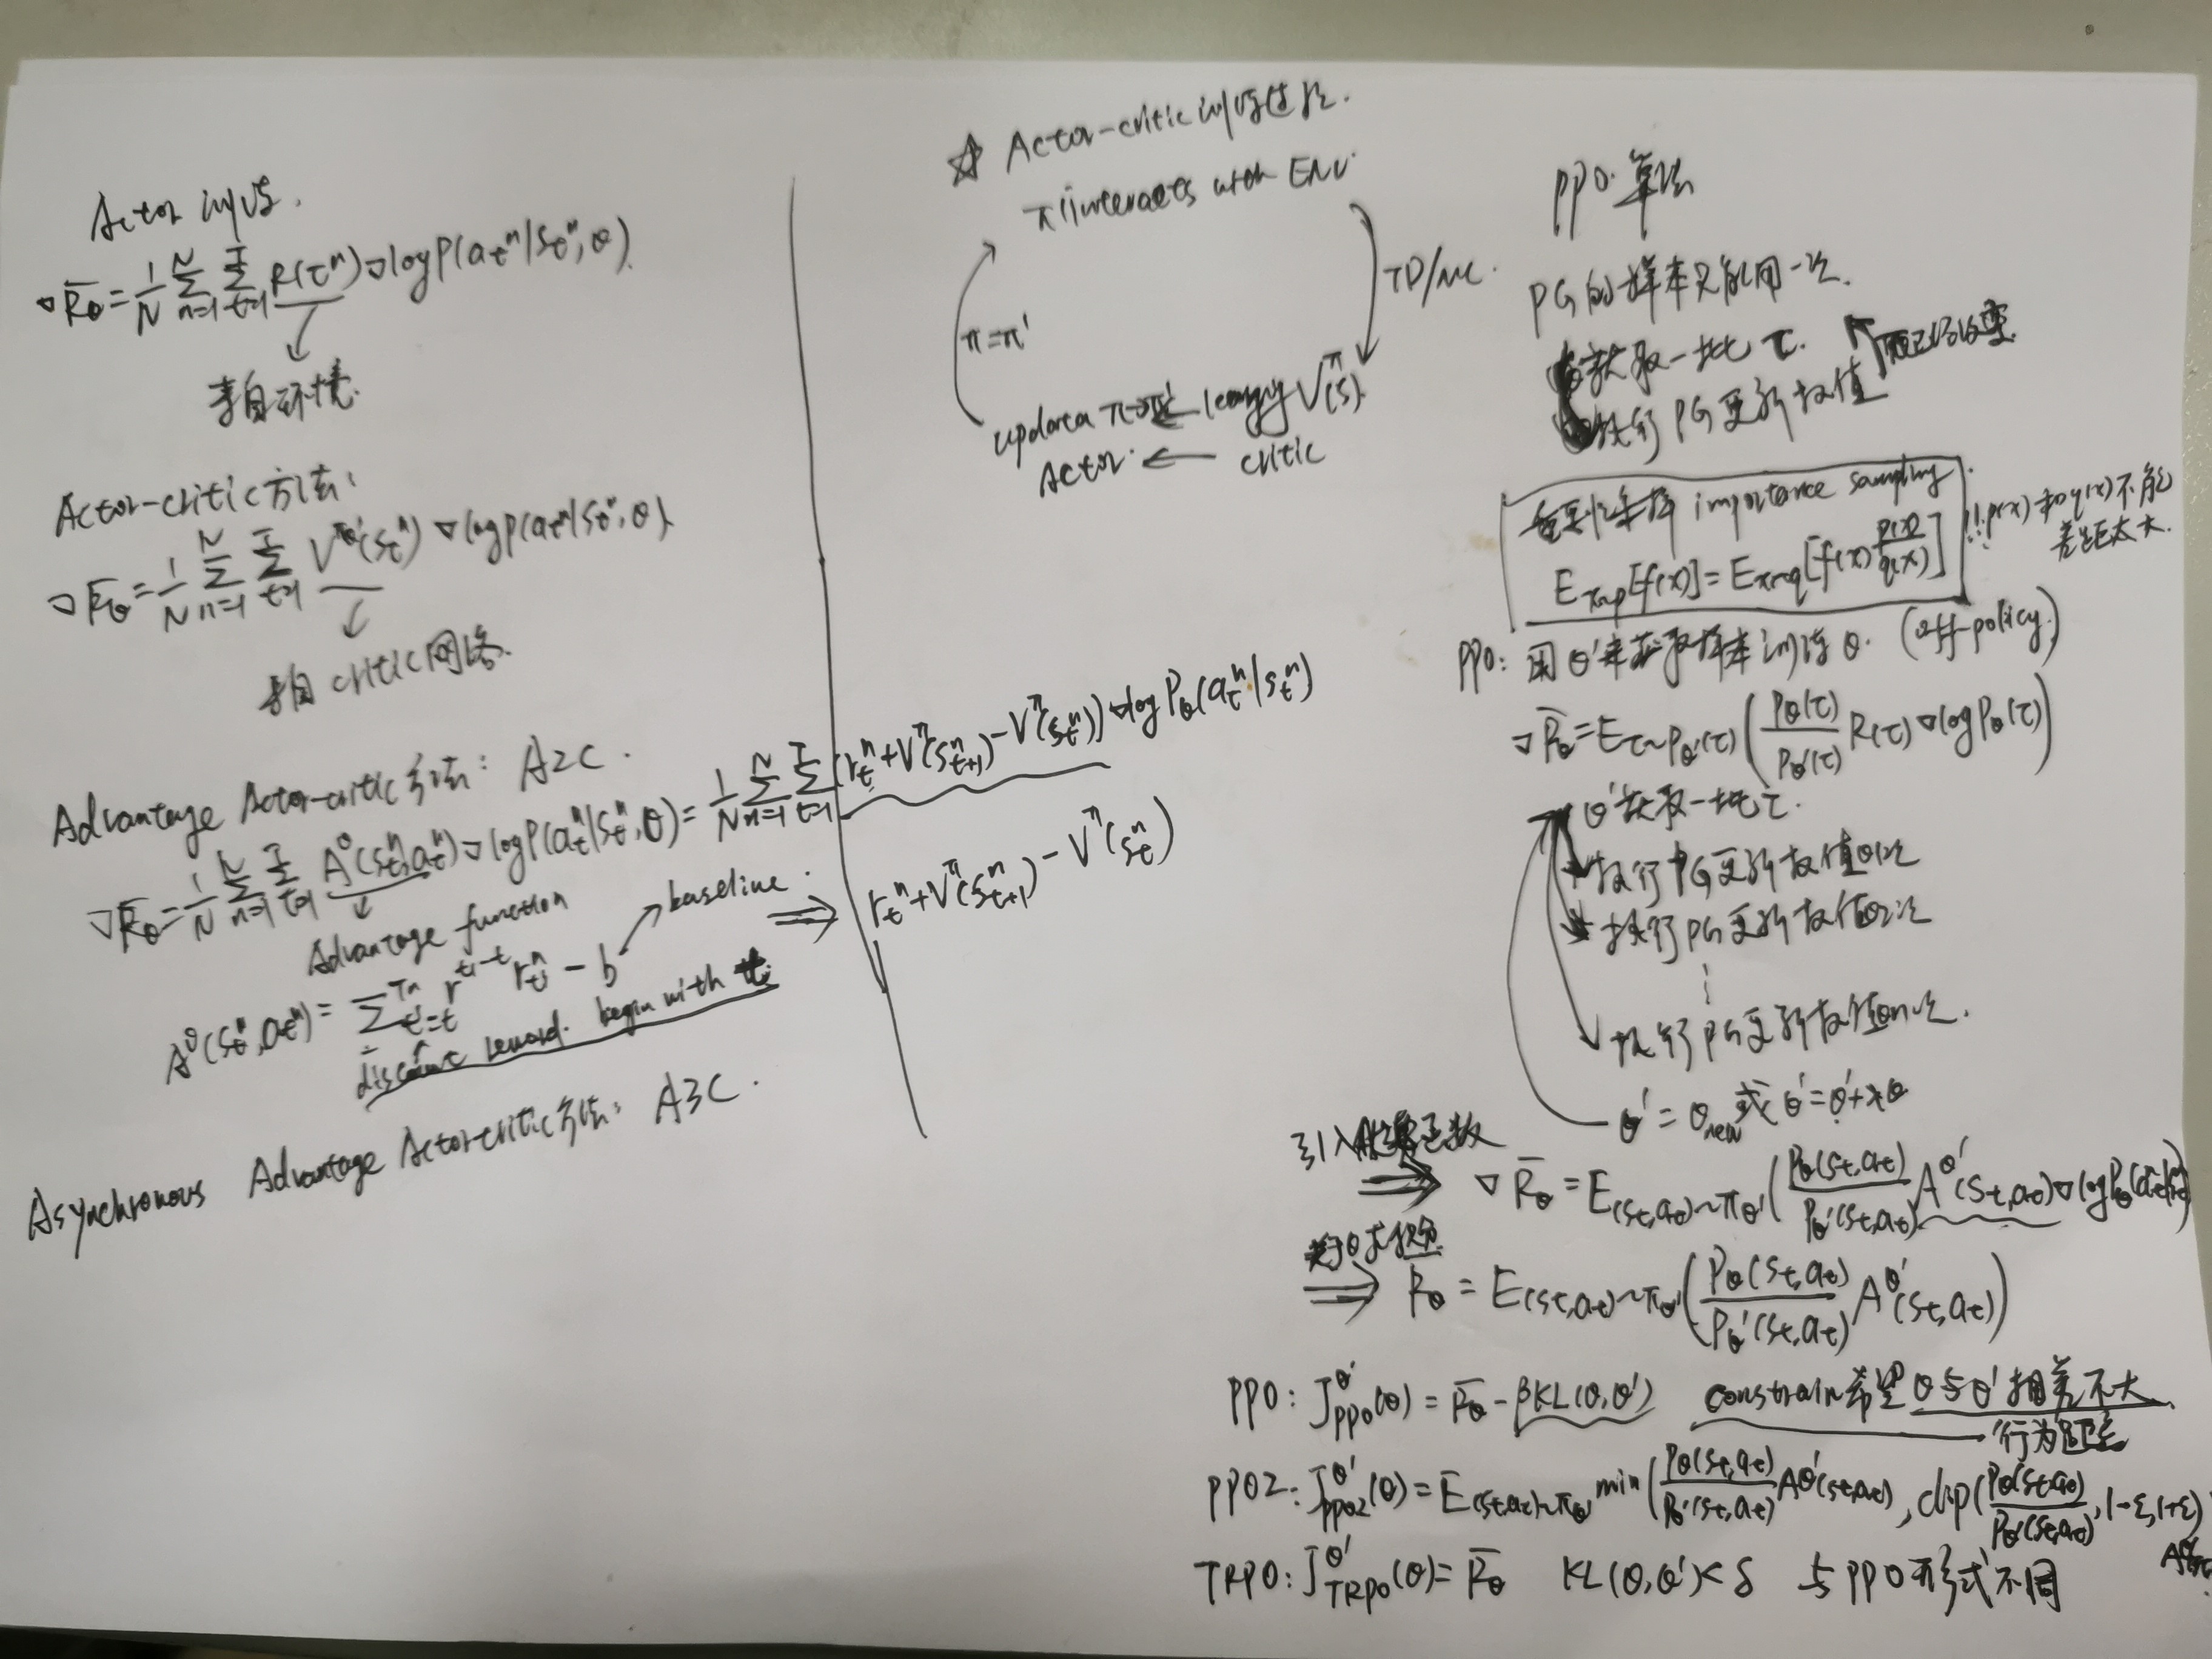 Actor 训练.
▽R̄θ = 1/N Σ_{n=1}^{N} Σ_{t=1}^{T} R(τⁿ)▽logP(aₜⁿ|sₜⁿ,θ).
↓
来自环境.
Actor-critic方法:
▽R̄θ = 1/N Σ_{n=1}^{N} Σ_{t=1}^{T} V^{πθ}(sₜⁿ) ▽logp(aₜⁿ|sₜⁿ,θ).
↓
来自critic网络.
Advantage Actor-critic方法: A2C.
▽R̄θ = 1/N Σ_{n=1}^{N} Σ_{t=1}^{T} A^θ(sₜⁿ,aₜⁿ)▽logp(aₜⁿ|sₜⁿ,θ) = 1/N Σ_{n=1}^{N} Σ_{t=1}^{T} (rₜⁿ+V^π(sₜ₊₁ⁿ)-V^π(sₜⁿ))▽logPθ(aₜⁿ|sₜⁿ)
↓
Advantage function
A^θ(sₜⁿ,aₜⁿ) = Σ_{t'=t}^{Tn} r^{t'-t} r_{t'}ⁿ - b ↗ baseline. ⇒ rₜⁿ+V^π(sₜ₊₁ⁿ)-V^π(sₜⁿ)
discount reward. begin with t.
Asynchronous Advantage Actor-critic方法: A3C.
☆ Actor-critic训练过程.
π interacts with ENV
TD/MC.
π=π'
learning V^π(s).
Actor. ← critic
PPO. 算法
PG的样本只能用一次.
获取一批 τ.
执行PG更新权值
重要性采样 importance sampling
E_{x~p}[f(x)] = E_{x~q}[f(x) p(x)/q(x)]
!!p(x)和q(x)不能
差距太大.
PPO: 用θ'来获取样本训练θ. (off-policy)
▽R̄θ = E_{τ~pθ'(τ)} (pθ(τ)/pθ'(τ) R(τ)▽logPθ(τ))
θ'获取一批τ.
执行PG更新权值θ1次
执行PG更新权值θ2次
⋮
执行PG更新权值θn次.
θ' = θ_new 或 θ'=θ'+λθ
⇒ ▽R̄θ = E_{(st,at)~πθ'} (Pθ(st,at)/Pθ'(st,at) A^{θ'}(st,at)▽logPθ(at|st))
⇒ Rθ = E_{(st,at)~πθ'} (Pθ(st,at)/Pθ'(st,at) A^{θ'}(st,at))
PPO: J^{θ'}_{PPO}(θ) = R̄θ - βKL(θ,θ') constrain希望θ与θ'相差不大
行为距离
PPO2: J^{θ'}_{PPO2}(θ) = E_{(st,at)~πθ'} min(Pθ(st,at)/Pθ'(st,at) A^{θ'}(st,at), clip(Pθ(st,at)/Pθ'(st,at), 1-ε,1+ε)
TRPO: J^{θ'}_{TRPO}(θ) = R̄θ KL(θ,θ')<δ 与PPO形式不同